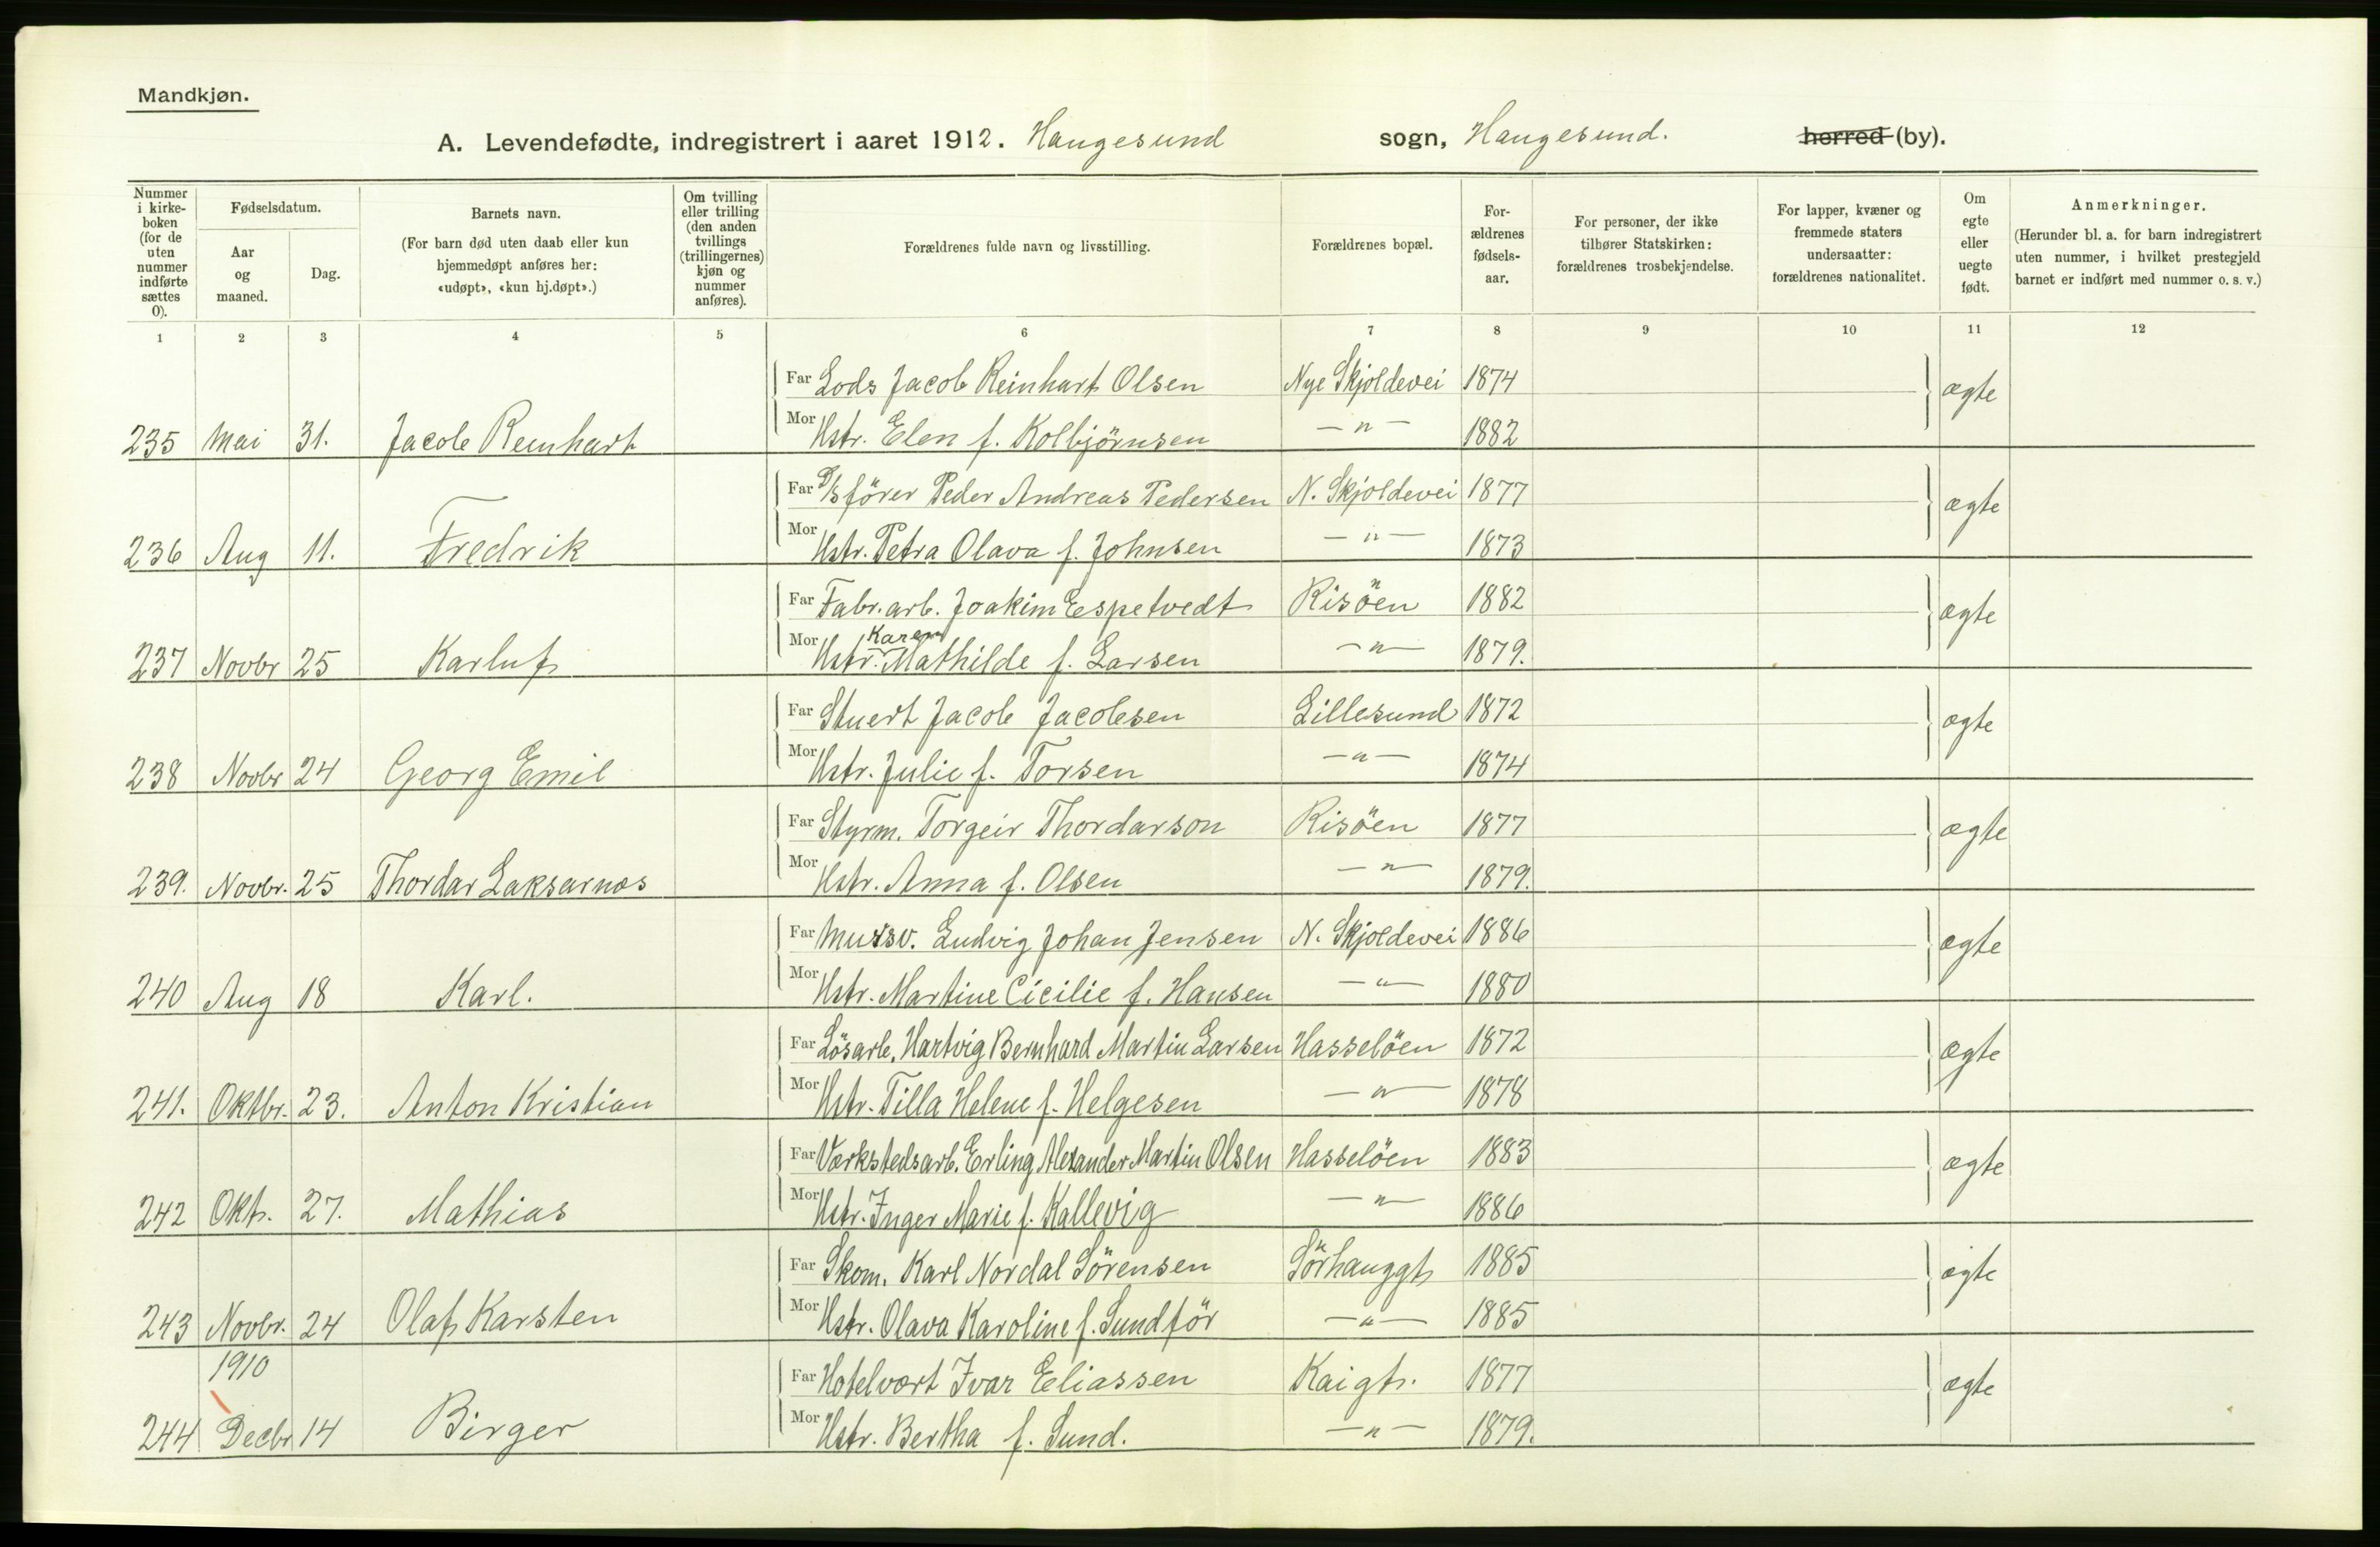 Mandkjøn.
A. Levendefødte, indregistrert i aaret 1912. Haugesund sogn, Haugesund. herred (by).
Nummer i kirke- boken (for de uten nummer indførte sættes 0).
Fødselsdatum.
Aar og maaned.
Dag.
Barnets navn.
(For barn død uten daab eller kun hjemmedøpt anføres her: «udøpt», «kun hj.døpt».)
Om tvilling eller trilling (den anden tvillings (trillingernes) kjøn og nummer anføres).
Forældrenes fulde navn og livsstilling.
Forældrenes bopæl.
For- ældrenes fødsels- aar.
For personer, der ikke tilhører Statskirken: forældrenes trosbekjendelse.
For lapper, kvæner og fremmede staters undersaatter: forældrenes nationalitet.
Om egte eller uegte født.
Anmerkninger.
(Herunder bl. a. for barn indregistrert uten nummer, i hvilket prestegjeld barnet er indført med nummer o. s. v.)
1 2 3 4 5 6 7 8 9 10 11 12
Far Lods Jacob Reinhart Olsen Nye Skjoldevei 1874 ægte
235 Mai 31. Jacob Reinhart Mor Hstr. Elen f. Kolbjörnsen —"— 1882
Far D/S förer Peder Andreas Pedersen N. Skjoldevei 1877 ægte
236 Aug 11. Fredrik Mor Hstr. Petra Olava f. Johnsen —"— 1873
Far Fabr. arb. Joakim Espetvedt Risöen 1882 ægte
237 Novbr 25 Karluf Mor Hstr. Karen Mathilde f. Larsen —"— 1879.
Far Stuert Jacob Jacobsen Lillesund 1872 ægte
238 Novbr 24 Georg Emil Mor Hstr. Julie f. Torsen —"— 1874
Far Styrm. Torgeir Thordarson Risöen 1877 ægte
239. Novbr. 25 Thordar Laksarnos Mor Hstr. Anna f. Olsen —"— 1879.
Far Mursv. Ludvig Johan Jensen N. Skjoldevei 1886 ægte
240 Aug 18 Karl. Mor Hstr. Martine Cicilie f. Hansen —"— 1880
Far Lösarb. Hartvig Bernhard Martin Larsen Hasselöen 1872 ægte
241. Oktbr. 23. Anton Kristian Mor Hstr. Tilla Helene f. Helgesen —"— 1878
Far Værkstedsarb. Erling Alexander Martin Olsen Hasselöen 1883 ægte
242 Okt. 27. Mathias Mor Hstr. Inger Marie f. Kallevig —"— 1886
Far Skom. Karl Nordal Sörensen Sörhauggt 1885 ægte
243 Novbr. 24 Olaf Karsten Mor Hstr. Olava Karoline f. Sundför —"— 1885
1910 Far Hotelvært Ivar Eliassen Kaigt. 1877 ægte
244 Decbr 14 Birger Mor Hstr. Bertha f. Sund. —"— 1879.